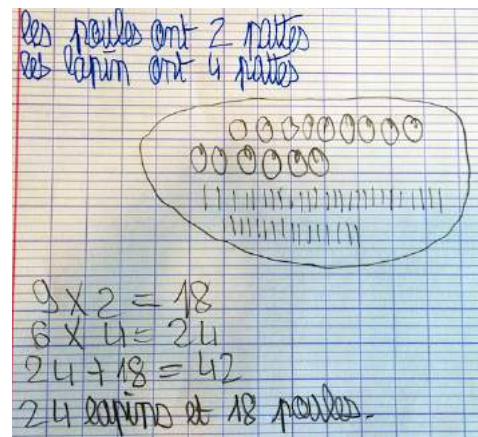 les poules ont 2 pattes
les lapin ont 4 pattes
9 X 2 = 18
6 X 4 = 24
24 + 18 = 42
24 lapins et 18 poules.